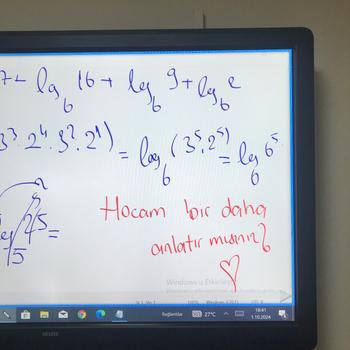 7 + log₆ 16 + log₆ 9 + log₆ 2
3³.2⁴.3².2¹) = log₆ (3⁵.2⁵) = log₆ 6⁵
Hocam bir daha
anlatır mısınız?
25 =
/5
Windows'u Etkinleştir
Bağlantılar
27°C
18:41
1.10.2024